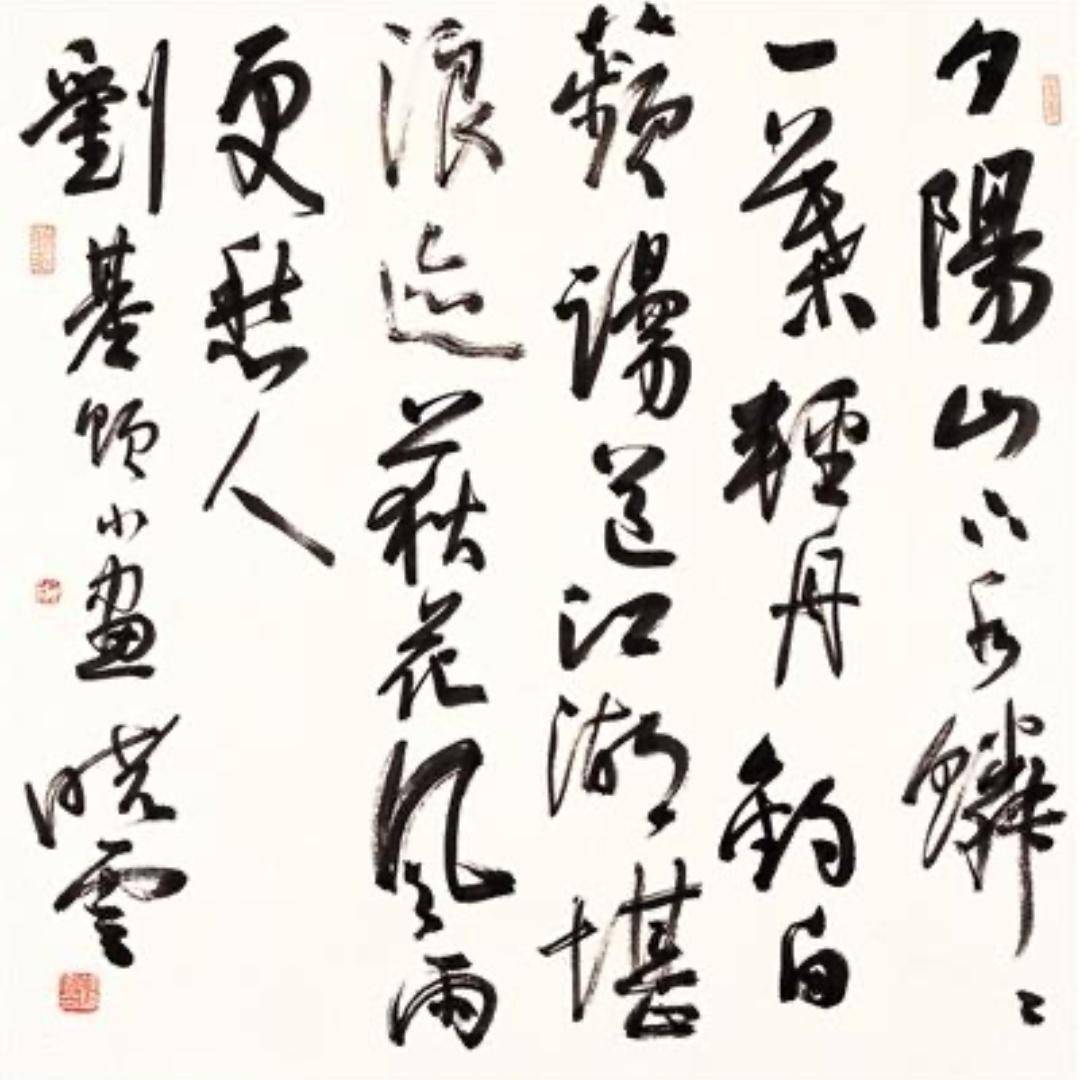 夕陽山下水鱗々
一葉輕舟釣白
蘋謾道江湖堪
浪迹荻花風雨
更愁人
劉基題小畫 曉雲